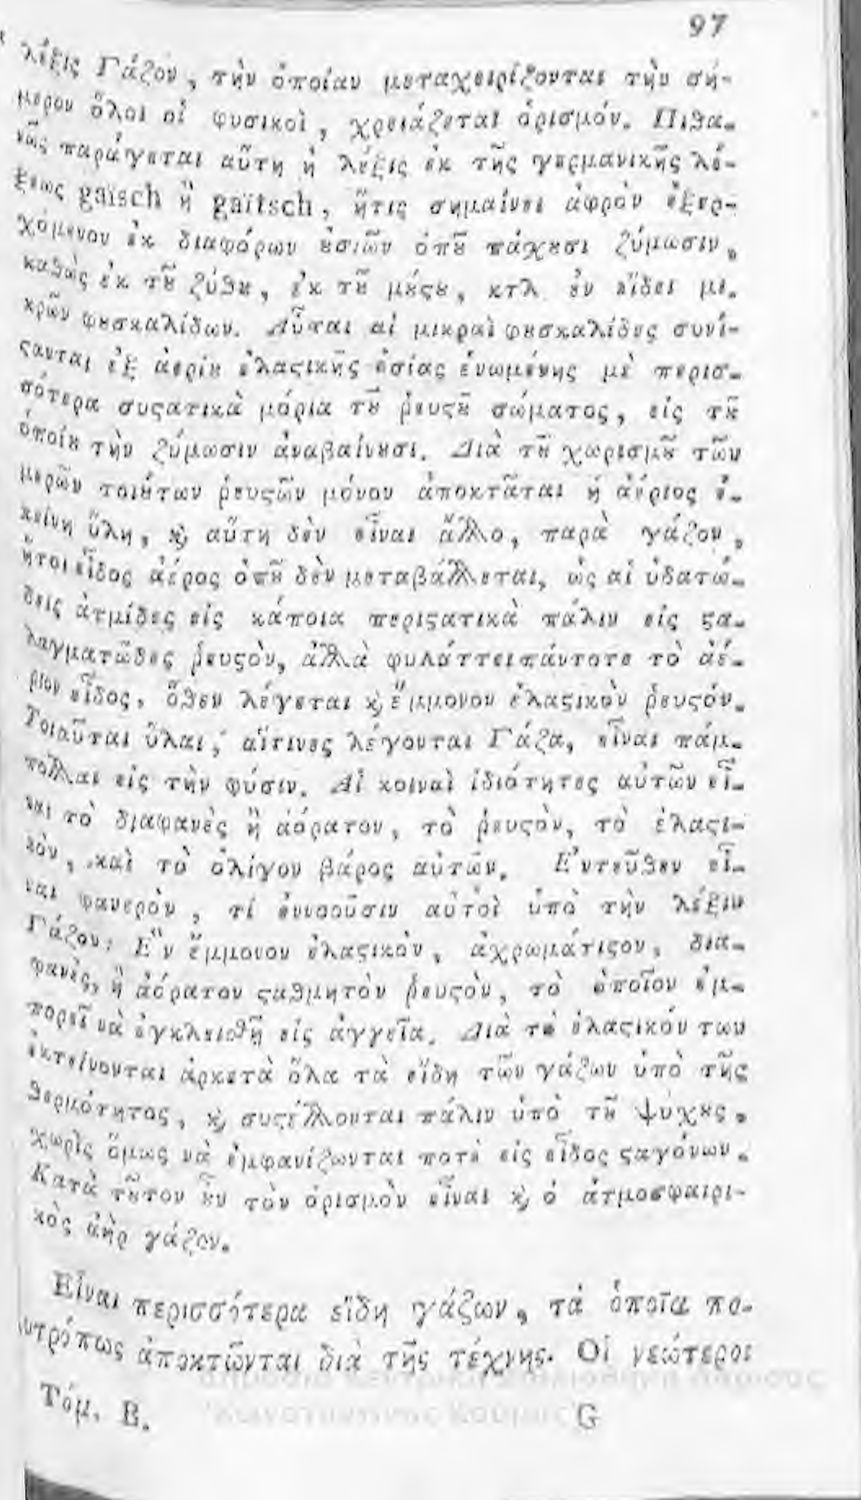 97
λέξις Γάζον, τὴν ὁποίαν μεταχειρίζονται τὴν σή-
μερον ὅλοι οἱ φυσικοὶ, χρειάζεται ὁρισμόν. Πιθα-
νῶς παράγεται αὕτη ἡ λέξις ἐκ τῆς γερμανικῆς λέ-
ξεως gaïsch ἢ gaïtsch, ἥτις σημαίνει ἀφρὸν ἐξερ-
χόμενον ἐκ διαφόρων ȣ̓σιῶν ὁπȣ͂ πάχȣσι ζύμωσιν,
καθὼς ἐκ τȣ͂ ζύθȣ, ἐκ τȣ͂ μύςȣ, κτλ. ἐν εἴδει μι-
κρῶν φȣσκαλίδων. Αὗται αἱ μικραὶ φȣσκαλίδες συνί-
ϛανται ἐξ ἀερίȣ ἐλαϛικῆς ȣ̓σίας ἑνωμένης μὲ περισ-
σότερα συϛατικὰ μόρια τȣ͂ ῥευϛȣ͂ σώματος, εἰς τȣ͂
ὁποίȣ τὴν ζύμωσιν ἀναβαίνȣσι. Διὰ τȣ͂ χωρισμȣ͂ τῶν
μερῶν τοιȣ́των ῥευϛῶν μόνον ἀποκτᾶται ἡ ἀέριος ἐ-
κείνη ὕλη, ϗ αὕτη δὲν εἶναι ἄλλο, παρὰ γάζον,
ἤτοι εἶδος ἀέρος ὁπȣ͂ δὲν μεταβάλλεται, ὡς αἱ ὑδατώ-
δεις ἀτμίδες εἰς κάποια περιϛατικὰ πάλιν εἰς ϛα-
λαγματῶδες ῥευϛὸν, ἀλλὰ φυλάττει πάντοτε τὸ ἀέ-
ριον εἶδος, ὅθεν λέγεται ϗ ἔμμονον ἐλαϛικὸν ῥευϛόν.
Τοιαῦται ὕλαι, αἵτινες λέγονται Γάζα, εἶναι πάμ-
πολλαι εἰς τὴν φύσιν. Αἱ κοιναὶ ἰδιότητες αὐτῶν εἶ-
ναι τὸ διαφανὲς ἢ ἀόρατον, τὸ ῥευϛὸν, τὸ ἐλαϛι-
κὸν, καὶ τὸ ὀλίγον βάρος αὐτῶν. Ἐντεῦθεν εἶ-
ναι φανερὸν, τί ἐννοοῦσιν αὐτοὶ ὑπὸ τὴν λέξιν
Γάζον; Ἓν ἔμμονον ἐλαϛικὸν, ἀχρωμάτιϛον, δια-
φανὲς, ἢ ἀόρατον ϛαθμητὸν ῥευϛὸν, τὸ ὁποῖον ἐμ-
πορεῖ νὰ ἐγκλεισθῇ εἰς ἀγγεῖα. Διὰ τὸ ἐλαϛικόν των
ἐκτείνονται ἀρκετὰ ὅλα τὰ εἴδη τῶν γάζων ὑπὸ τῆς
θερμότητος, ϗ συϛέλλονται πάλιν ὑπὸ τȣ͂ ψύχȣς,
χωρὶς ὅμως νὰ ἐμφανίζωνται ποτὲ εἰς εἶδος ϛαγόνων.
Κατὰ τȣ͂τον ȣ̓͂ν τὸν ὁρισμὸν εἶναι ϗ ὁ ἀτμοσφαιρι-
κὸς ἀὴρ γάζον.
Εἶναι περισσότερα εἴδη γάζων, τὰ ὁποῖα πο-
λυτρόπως ἀποκτῶνται διὰ τῆς τέχνης. Οἱ νεώτεροι
Τόμ. Β. G